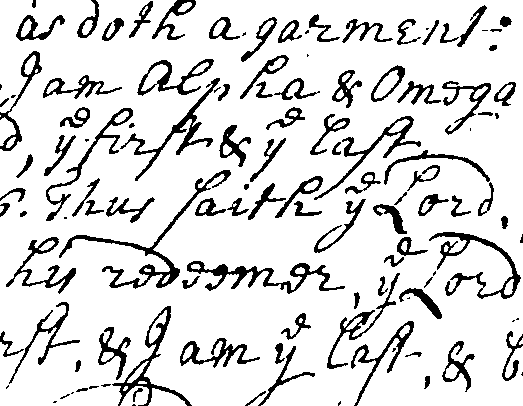 as doth a garment:
I am Alpha & Omega
yͤ first & yͤ last
6. Thus saith yͤ Lord,
his redeemer, yͤ Lord
rst, & I am yͤ last, &